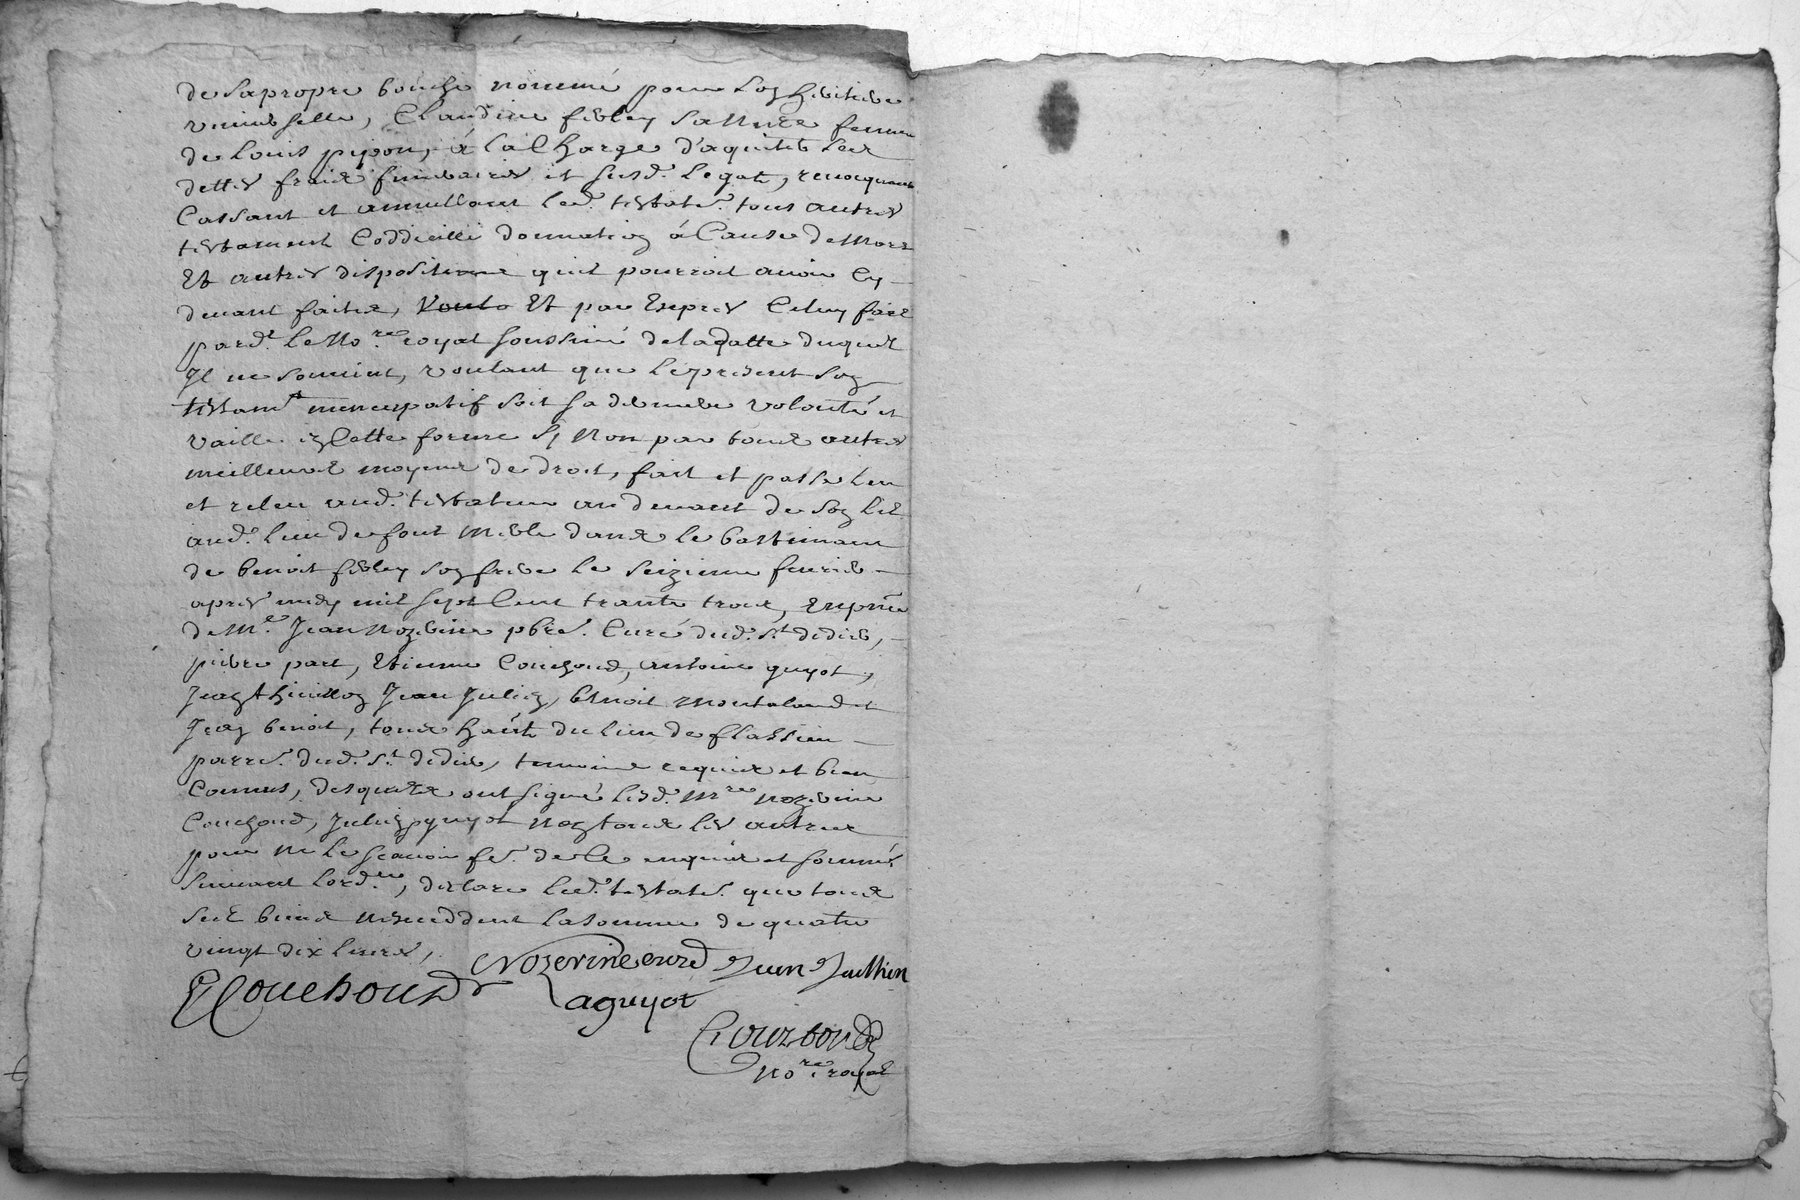 de sa propre bouche nommé pour son heritiere
universelle, Claudine ferley sa niece femme
de Louis pipon, á la Charge d'aquiter ses
dettes fraix funeraires et susd. legats, revoquant
Cassant et annullant led. testatr. tous autres
testament Coddicille donnation á Cause de Mort
Et autres dispositions quil pourroit avoir Cy
devant faites, Et par Exprés Celuy fait
pard.t le No.re royal soussiné de la datte duquel
Il ne souvient, voulant que le present son
testam.t nuncupatif soit sa derniere volonté et
vaille en Cette forme Sy Non par tous autres
meilleurs moyens de droit, fait et passé leu
et releu aud. testateur au devant de son lit
aud. lieu de font merle dans le bastiment
de benoit ferley son frere le seizieme fevrier
apres midy mil sept Cent trante trois, En pnce
de M.e Jean Nozerine pbre. Curé dud. S.t didier,
pierre part, Etienne Couchoud, antoine guyot,
Jean thivillon Jean Julien, benoit montaland et
Jean benoit, tous haûts du lieu de flassieu
parre. dud. S.t didier, temoins requis et bien
Connus, desquels ont signé lesd. M.re nozerine
Couchoud, Julien guyot Non tous les autres
pour ne le scavoir fe. de ce enquis et sommés
suivant lord.ce, declare led. testatr. que tous
ses biens n'exceddent la somme de quatre
vingt dix livres,
Nozerine curé Jean Jullien
E Couchoud
aguyot
Courbon
No.re royal